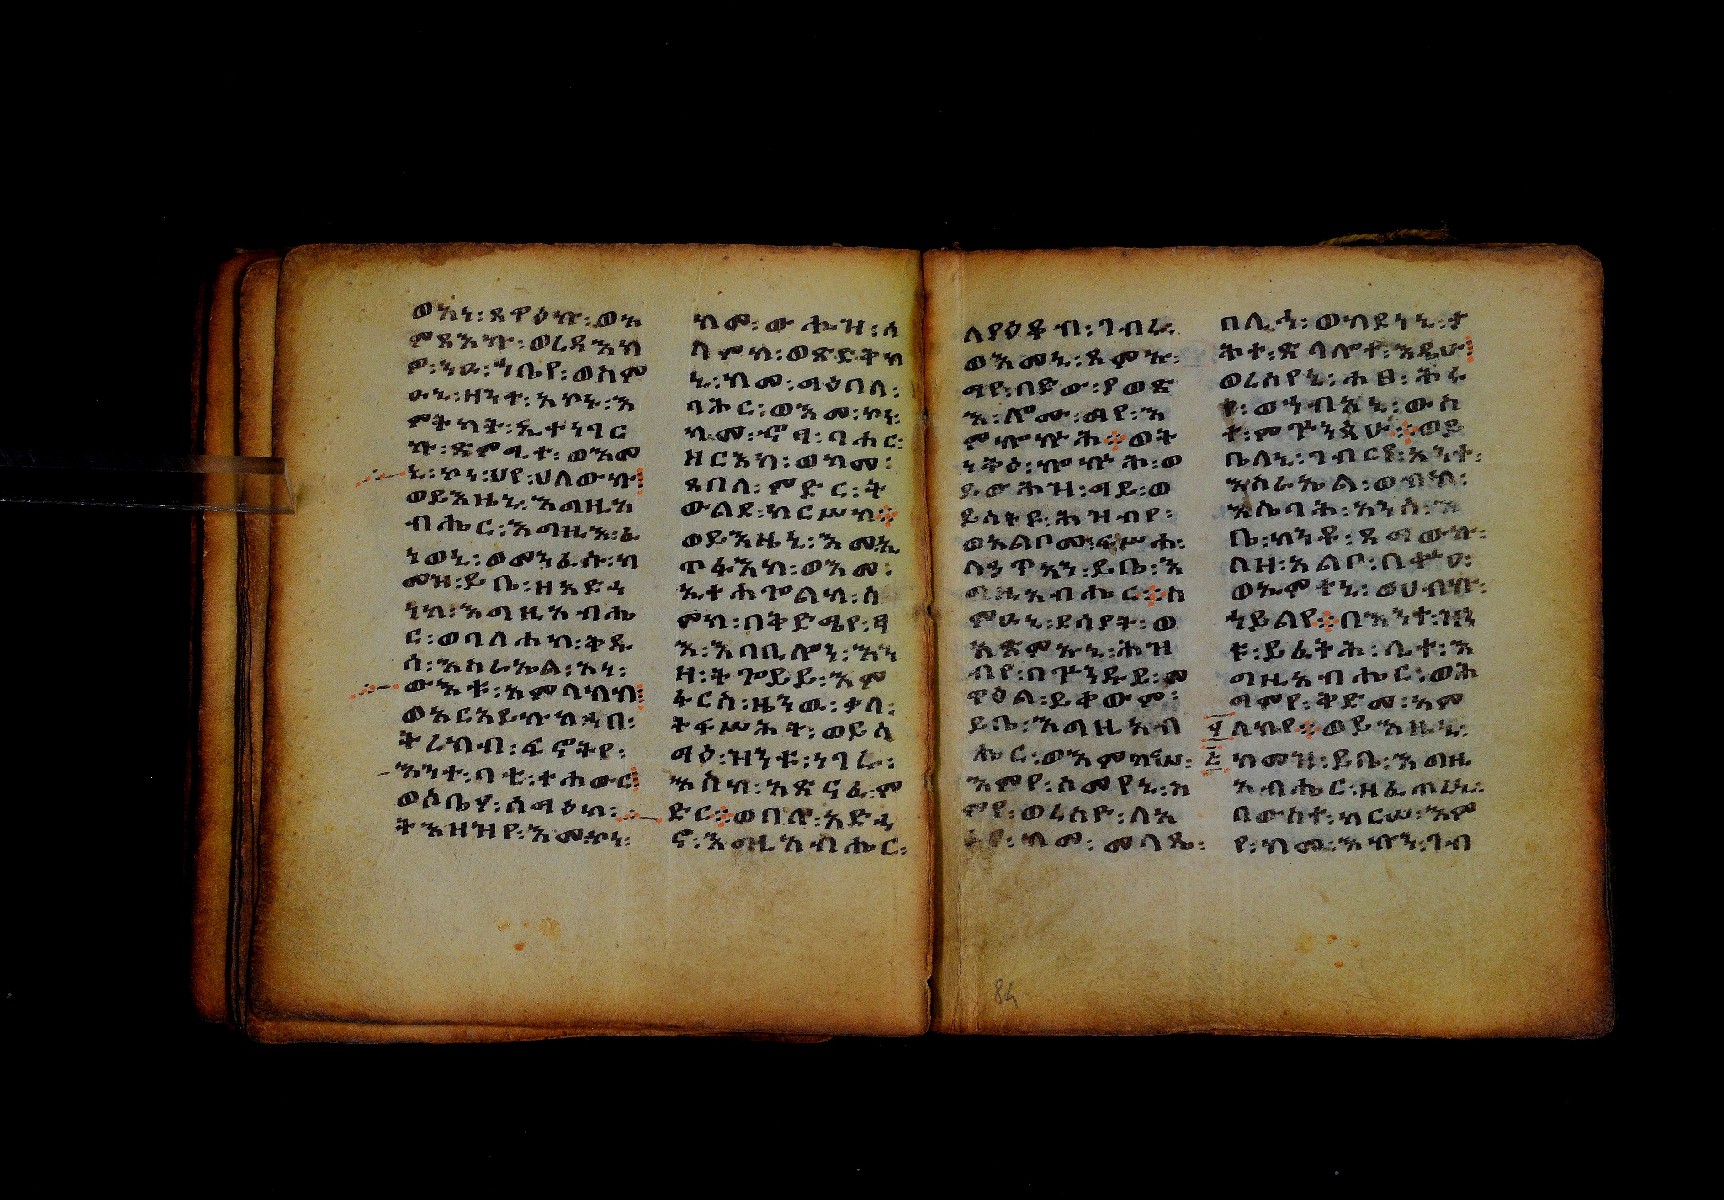 ወአነ፡ጸዋዕኩ፡ወአ
ምጻእኩ፡ወረዳእክ
ዎ፡ንዑ፡ኀቤየ፡ወስም
ዑኒ፡ዘንተ፡አኮኑ፡እ
ምትካት፡ኢተነገር
ኩ፡ጽሚተ፡ወእመ
ኒ፡ኮነ፡ህየ፡ሀለውኩ፡
ወይእዜኒ፡እግዚአ
ብሔር፡እግዚእ፡ፈ
ነወኒ፡ወመንፈሱ፡ከ
መዝ፡ይቤ፡ዘአድኀ
ነከ፡እግዚአብሔ
ር፡ወባልሐከ፡ቅዱ
ሰ፡እስራኤል፡አነ፡
ውእቱ፡አምላክከ፡
ወአርአይኩከ፡ከ
ትራክብ፡ፍኖትየ፡
እንተ፡ባቲ፡ተሐውር፡
ወሶቤሃ፡ሰማዕከ፡
ትእዛዝየ፡እመኮነ፡
ከመ፡ውሒዝ፡ሰ
ላምከ፡ወጽድቅከ
ኒ፡ከመ፡ማዕበለ፡
ባሕር፡ወእመ፡ኮነ፡
ከመ፡ኆፃ፡ባሕር፡
ዘርእከ፡ወከመ፡
ጸበለ፡ምድር፡ት
ውልደ፡ከርሥከ።
ወይእዜኒ፡እመኢ
ጥፋእከ፡ወእመ፡
ኢተሐጐልከ፡ስ
ምከ፡በቅድሜየ፡ፃ
እ፡እባቢሎን፡እን
ዘ፡ትጐይይ፡እም
ፋርስ፡ዜንዉ፡ቃለ፡
ትፍሥሕት፡ወይሰ
ማዕ፡ዝንቱ፡ነገር፡
እስከ፡አጽናፈ፡ም
ድር።ወበሉ፡አድኀ
ኖ፡እግዚአብሔር፡
ለያዕቆብ፡ገብሩ፡
ወእመኒ፡ጸምኡ፡
ማየ፡በድው፡ያወጽ
እ፡ሎሙ፡ማየ፡እ
ምኰኵሕ።ወት
ነቅዕ፡ኰኵሕ፡ወ
ይውሕዝ፡ማይ፡ወ
ይሰትይ፡ሕዝብየ፡
ወአልቦሙ፡ፍሥሐ፡
ለኃጥአን፡ይቤ፡እ
ግዚአብሔር።ስ
ምዑኒ፡ደሰያት፡ወ
አጽምኡኒ፡ሕዝ
ብየ፡በጕንዱይ፡መ
ዋዕል፡ይቀውም፡
ይቤ፡እግዚአብ
ሔር፡ወእምከርሠ፡
እምየ፡ስመየኒ፡ስ
ምየ፡ወረሰዮ፡ለአ
ፉየ፡ከመ፡መባጺ፡
በሊኅ፡ወከደነኒ፡ታ
ሕተ፡ጽላሎተ፡እዴሁ፡
ወረሰየኒ፡ሐፀ፡ሕሩ
የ፡ወኀብአኒ፡ውስ
ተ፡ምጕንጳሁ።ወይ
ቤለኒ፡ገብርየ፡አንተ፡
እስራኤል፡ወብከ፡
እሴባሕ፡አንሰ፡እ
ቤ፡ከንቶ፡ጻማውኩ፡
በዘ፡አልቦ፡በቍዑ፡
ወኢምተኒ፡ወሀብኩ፡
ኀይልየ።በእንተዝ
ቱ፡ይፈትሕ፡ሊተ፡እ
ግዚአብሔር፡ወሕ
ማምየ፡ቅድመ፡አም
ላክየ።ወይእዜኒ፡
ከመዝ፡ይቤ፡እግዚ
አብሔር፡ዘፈጠረኒ፡
በውስተ፡ከርሠ፡እም
የ፡ከመ፡እኩን፡ገብ
84